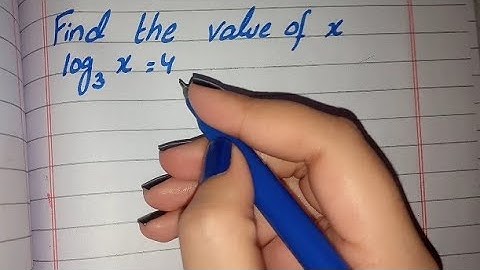 Find the value of x
log₃ x = 4